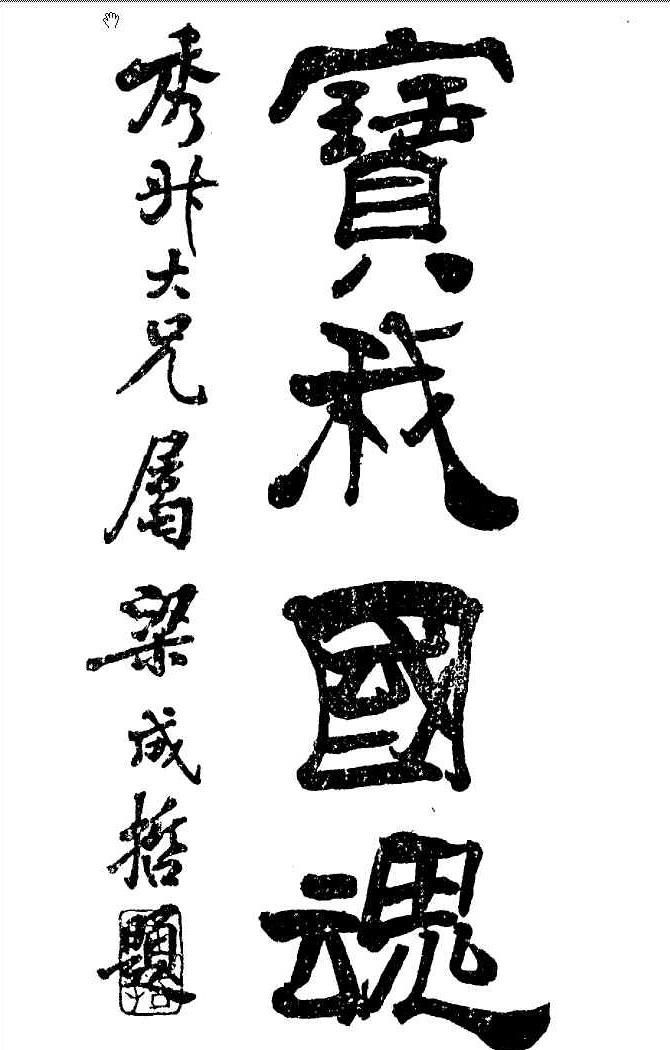 寶我國魂
秀升大兄屬梁成哲題